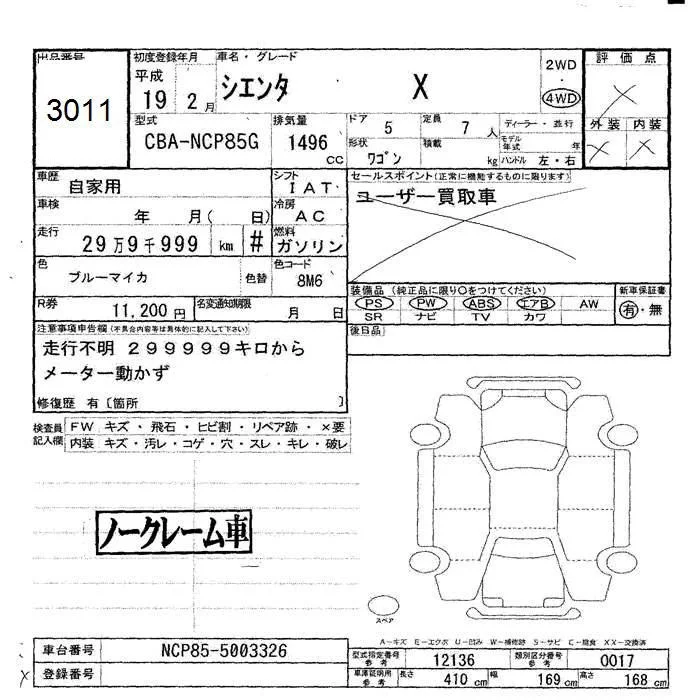 出品番号
3011
初度登録年月
平成
19 2 月
車名・グレード
シエンタ X
2WD
・
4WD
評価点
外装 内装
型式
CBA-NCP85G
排気量
1496
cc
ドア 5
定員 7 人
ディーラー・並行
モデル年式 年
形状
ワゴン
積載
kg
ハンドル 左・右
車歴
自家用
シフト
IAT
セールスポイント(正常に機能するものに限ります)
ユーザー買取車
車検
年 月( 日)
冷房
AC
走行
29万9千999 km #
燃料
ガソリン
色
ブルーマイカ
色替
色コード
8M6
装備品 (純正品に限り○をつけてください)
PS PW ABS エアB AW
SR ナビ TV カワ
新車保証書
有・無
R券
11,200 円
名変通知期限
月 日
後日品
注意事項申告欄(不具合内容等は具体的に記入して下さい)
走行不明 299999キロから
メーター動かず
修復歴 有〔箇所 〕
検査員
記入欄
FW キズ・飛石・ヒビ割・リペア跡・×要
内装 キズ・汚レ・コゲ・穴・スレ・キレ・破レ
ノークレーム車
スペア
A-キズ E-エクボ U-凹み W-補修跡 S-サビ C-腐食 XX-交換済
車台番号
NCP85-5003326
登録番号
型式指定番号
参考
12136
類別区分番号
参考
0017
車庫証明用
参考
長さ 410 cm
幅 169 cm
高さ 168 cm